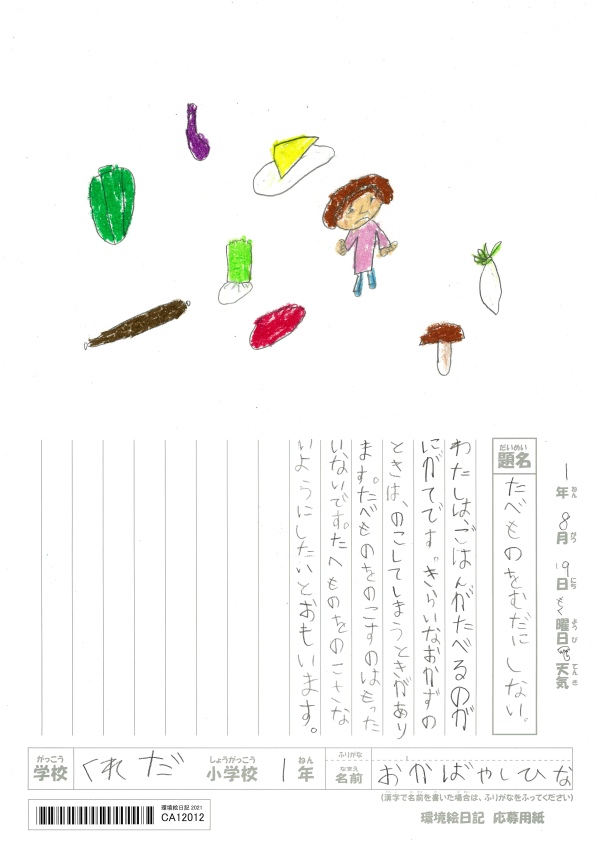 1年 8月 19日 もく曜日 天気
ねん がつ にち ようび てんき
だいめい
題名
たべものをむだにしない。
わたしは、ごはんがたべるのが
にがてです。きらいなおかずの
ときは、のこしてしまうときがあり
ます。たべものをのこすのはもった
いないです。たべものをのこさな
いようにしたいとおもいます。
がっこう しょうがっこう ねん ふりがな
学校 くれだ 小学校 1年 なまえ 名前 おかばやしひな
(漢字で名前を書いた場合は、ふりがなをふってください)
環境絵日記 応募用紙
環境絵日記 2021
CA12012